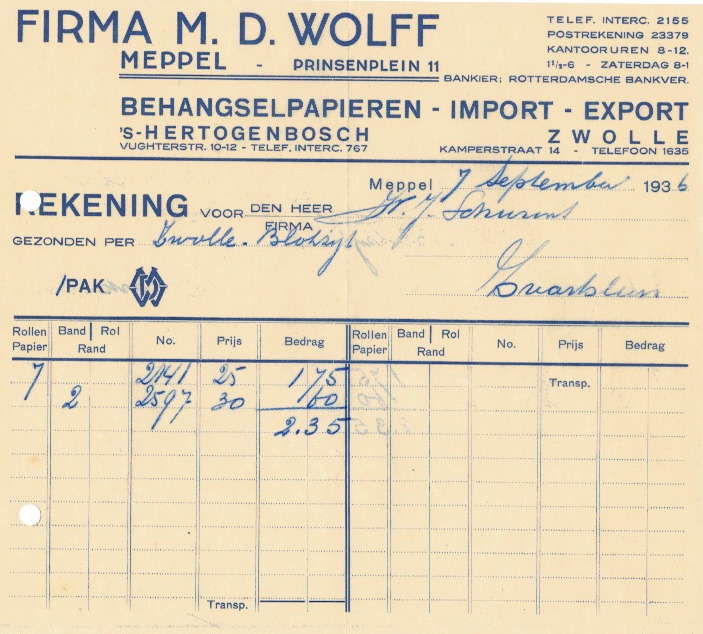 FIRMA M. D. WOLFF
MEPPEL - PRINSENPLEIN 11
TELEF. INTERC. 2155
POSTREKENING 23379
KANTOORUREN 8-12.
1½-6 - ZATERDAG 8-1
BANKIER; ROTTERDAMSCHE BANKVER.
BEHANGSELPAPIEREN - IMPORT - EXPORT
'S-HERTOGENBOSCH
VUGHTERSTR. 10-12 - TELEF. INTERC. 767
ZWOLLE
KAMPERSTRAAT 14 - TELEFOON 1635
Meppel 7 September 1936
REKENING VOOR DEN HEER
FIRMA
GEZONDEN PER Zwolle - Blokzijl
/PAK
Rollen Papier Band Rol Rand No. Prijs Bedrag Rollen Papier Band Rol Rand No. Prijs Bedrag
7 2141 25 1 75 Transp.
2 2597 30 60
2.35
Transp.